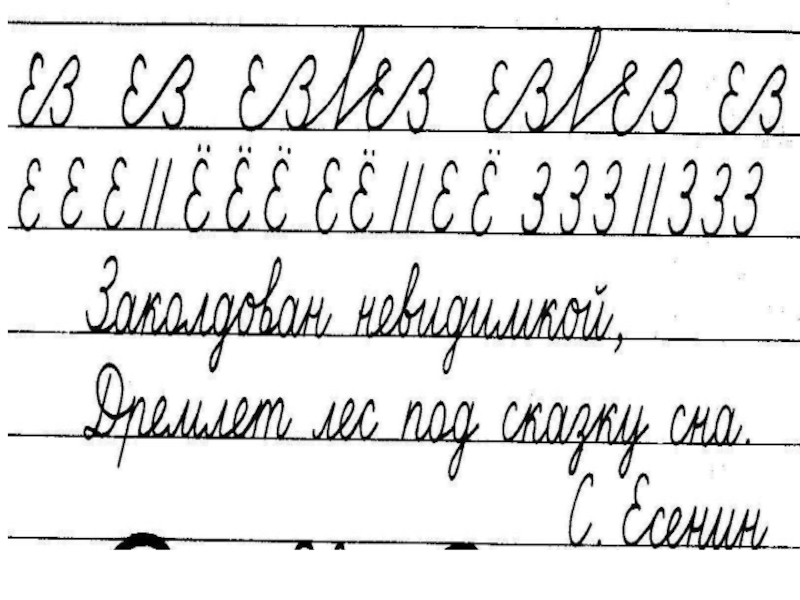 Е Е Е // Ё Ё Ё Е Ё // Е Ё З З З // З З З
Заколдован невидимкой,
Дремлет лес под сказку сна.
С. Есенин